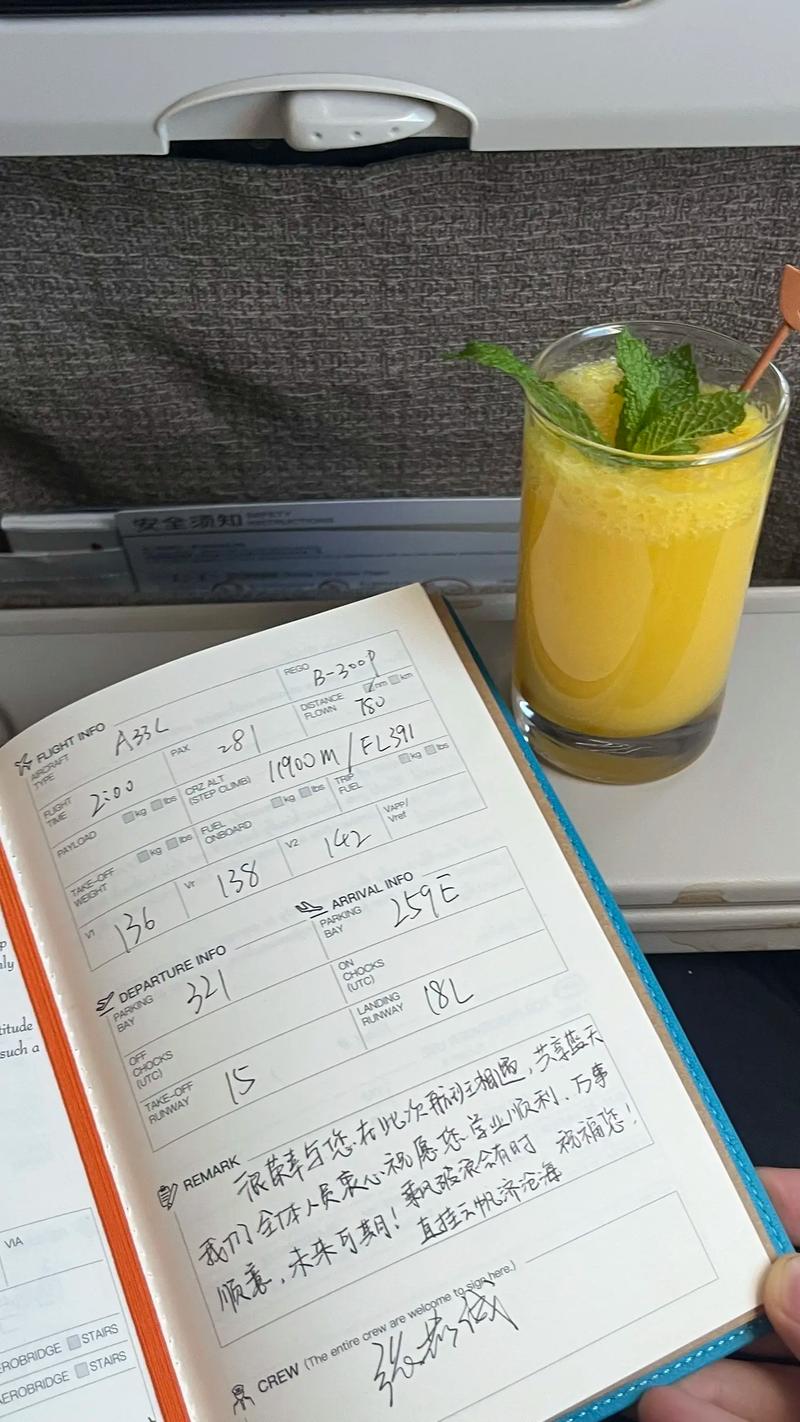 安全须知 SAFETY INSTRUCTIONS
FLIGHT INFO
AIRCRAFT TYPE A33L
REGO B-300P
FLIGHT TIME 2:00
PAX 281
DISTANCE FLOWN nm km 780
PAYLOAD kg lbs
CRZ ALT (STEP CLIMB) 11900m/FL391
TAKE-OFF WEIGHT kg lbs
FUEL ONBOARD kg lbs
TRIP FUEL kg lbs
V1 136
Vr 138
V2 142
VAPP/Vref
DEPARTURE INFO
ARRIVAL INFO
PARKING BAY 321
PARKING BAY 259E
OFF CHOCKS (UTC)
ON CHOCKS (UTC)
TAKE-OFF RUNWAY 15
LANDING RUNWAY 18L
REMARK
很荣幸与您在此次航班相遇,共享蓝天
我们全体人员衷心祝愿您学业顺利、万事
顺意,未来可期!乘风破浪会有时 祝福您!
直挂云帆济沧海
CREW (The entire crew are welcome to sign here.)
titude
such a
VIA
AEROBRIDGE STAIRS
AEROBRIDGE STAIRS